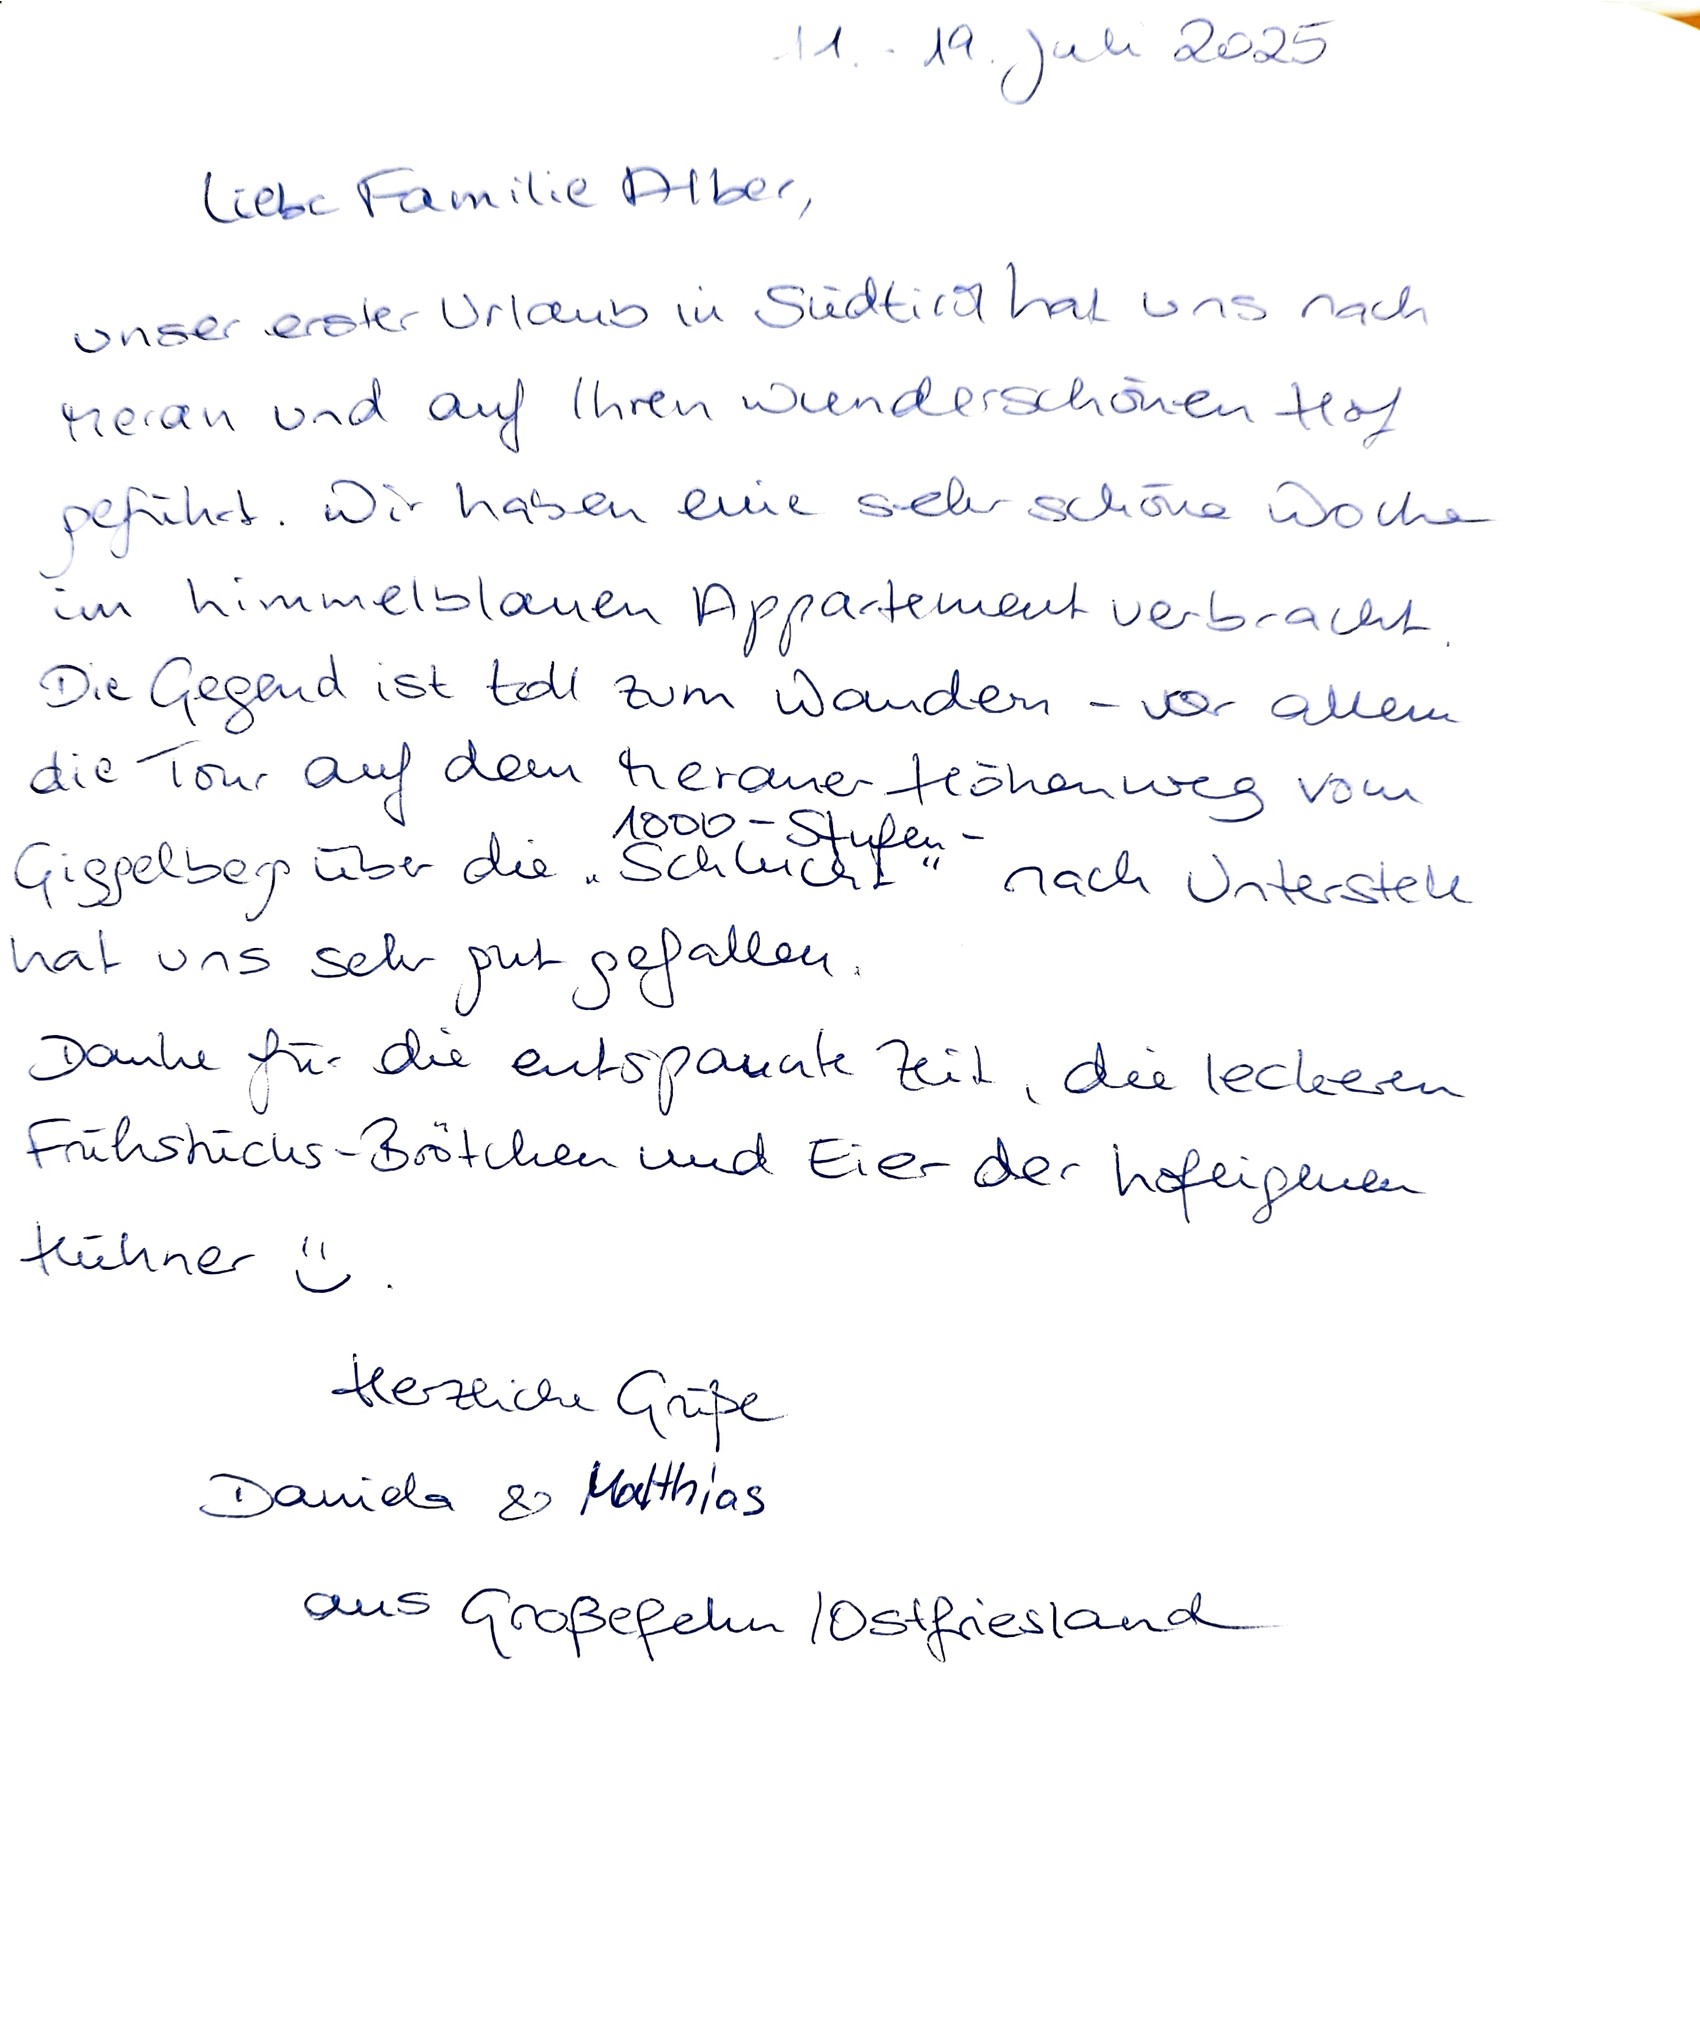 11. - 19. Juli 2025
Liebe Familie Alber,
unser erster Urlaub in Südtirol hat uns nach
Meran und auf Ihren wunderschönen Hof
geführt. Wir haben eine sehr schöne Woche
im himmelblauen Appartement verbracht.
Die Gegend ist toll zum Wandern - vor allem
die Tour auf dem Meraner Höhenweg vom
1000-Stufen-
Giggelberg über die „Schlucht“ nach Unterstell
hat uns sehr gut gefallen.
Danke für die entspannte Zeit, die leckeren
Frühstücks-Brötchen und Eier der hofeigenen
Hühner ü.
Herzliche Grüße
Daniela & Matthias
aus Großefehn / Ostfriesland